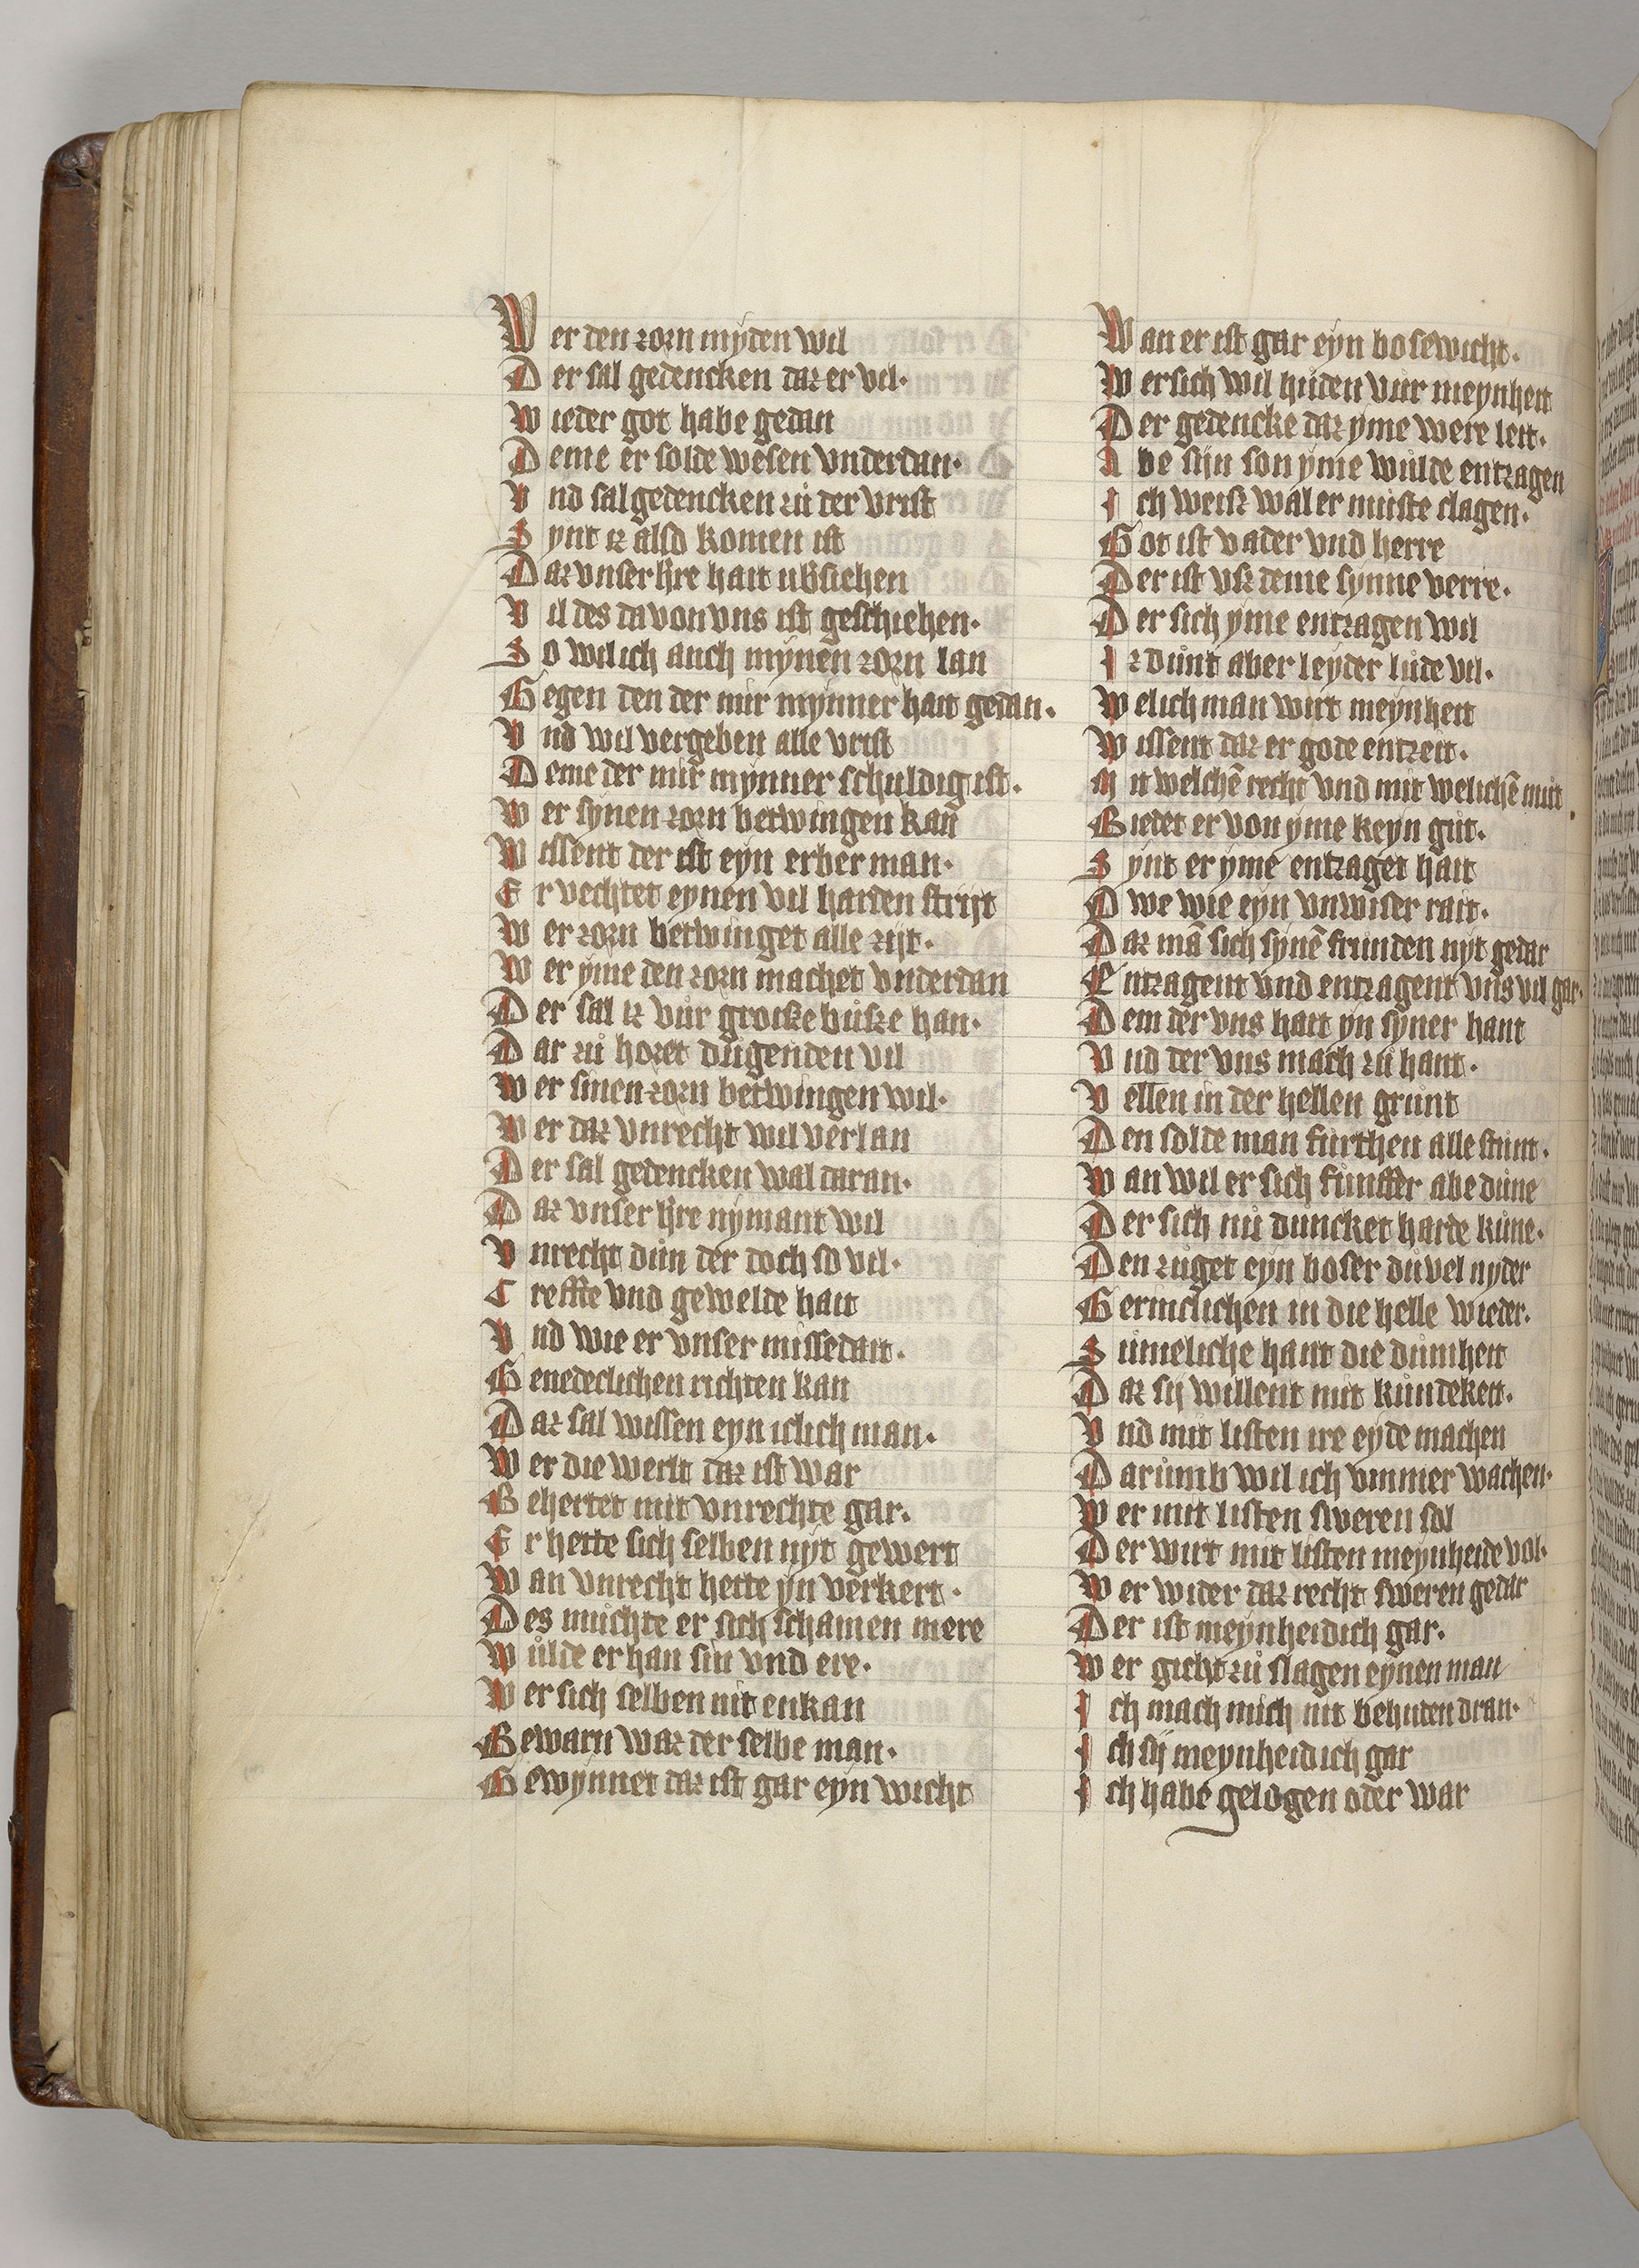 Wer den zorn myden wil
Der sal gedencken daz er vil·
Wieder got habe gedan
Deme er solde wesen vnderdan·
Vnd sal gedencken zů der vrist
Synt iz also komen ist
Daz vnser h̄re hait ub̄siehen
Vil des da von vns ist geschiehen·
So wil ich auch mynen zorn lan
Gegen den der mir mynner hait gedan·
Vnd wil vergeben alle vrist
Deme der mir mynner schuldig ist·
Wer synen zorn betwingen kan
Wissent der ist eyn erber man·
Er vechtet eynen vil harden strijt
Wer zorn betwinget alle zijt·
Wer yme den zorn machet vnderdan
Der sal iz vůr groiße bůße han·
Dar zů horet dugenden vil
Wer sinen zorn betwingen wil·
Wer daz vnrecht wil verlan
Der sal gedencken wal daran·
Daz vnser h̄re nymant wil
Vnrecht důn der doch so vil·
Creffte vnd gewelde hait
Vnd wie er vnser missedait·
Genedeclichen richten kan
Daz sal wissen eyn iclich man·
Wer die werlt daz ist war
Behertet mit vnrechte gar·
Er hette sich selben nyt gewert
Wan vnrecht hette yn verkert·
Des muichte er sich schamen mere
Wůlde er han sin vnd ere·
Wer sich selben nit enkan
Bewarn waz der selbe man·
Gewynnet daz ist gar eyn wicht
Wan er ist gar eyn bosewicht·
Wer sich wil hůden vůr meynheit
Der gedencke daz yme were leit·
Abe sijn son yme wůlde entzagen
Ich weisz wal er muiste clagen·
Got ist vader vnd herre
Der ist vsz deme synne verre·
Der sich yme entzagen wil
Iz důnt aber leyder lůde vil·
Welich man wirt meynheit
Wissent daz er gode entzeit·
Mit welchē recht vnd mit welichē můt
Bietet er von yme keyn gůt·
Synt er yme entzaget hait
Owe wie eyn vnwiser rait·
Daz mā sich synē frunden nyt gedar
Entzagent vnd entzagent vns vil gar·
Dem der vns hait yn syner hant
Vnd der vns mach zů hant·
Vellen in der hellen grůnt
Den solde man fůrthen alle stůnt·
Wan wil er sich fůnffer abe důne
Der sich nů duncket harde kůne·
Den zůget eyn boser důvel nyder
Germclichen in die helle wieder·
Sůmeliche hant die důmheit
Daz sij willent mit kůndekeit·
Vnd mit listen ire eyde machen
Darůmb wil ich vmmer wachen·
Wer mit listen sweren sol
Der wirt mit listen meynheide vol·
Wer wider daz recht sweren gedar
Der ist meynheidich gar·
Wer gicht zů slagen eynen man
Ich mach mich nit behuten dran·
Ich sij meynheidich gar
Ich habe gelogen oder war